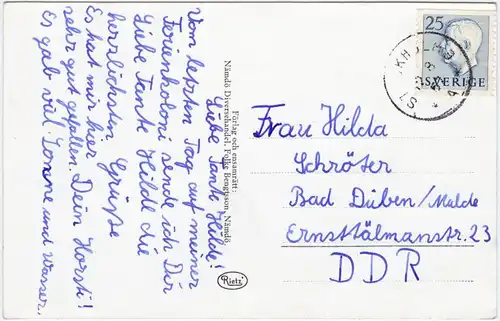 Liebe Tante Hilde!
Vom letzten Tag auf meiner
Ferienkoloni sende ich Dir
Liebe Tante Hilde die
herrlichsten Grüße
Es hat mir hier
sehr gut gefallen Dein Horsti!
Es gab viel Sonne und Wasser.
Förlag och ensamrätt:
Nämdö Diversehandel, Folke Bengtsson, Nämdö.
Rietz
25
SVERIGE
Frau Hilda
Schröter
Bad Düben/Mulde
Ernsttälmanstr. 23
DDR